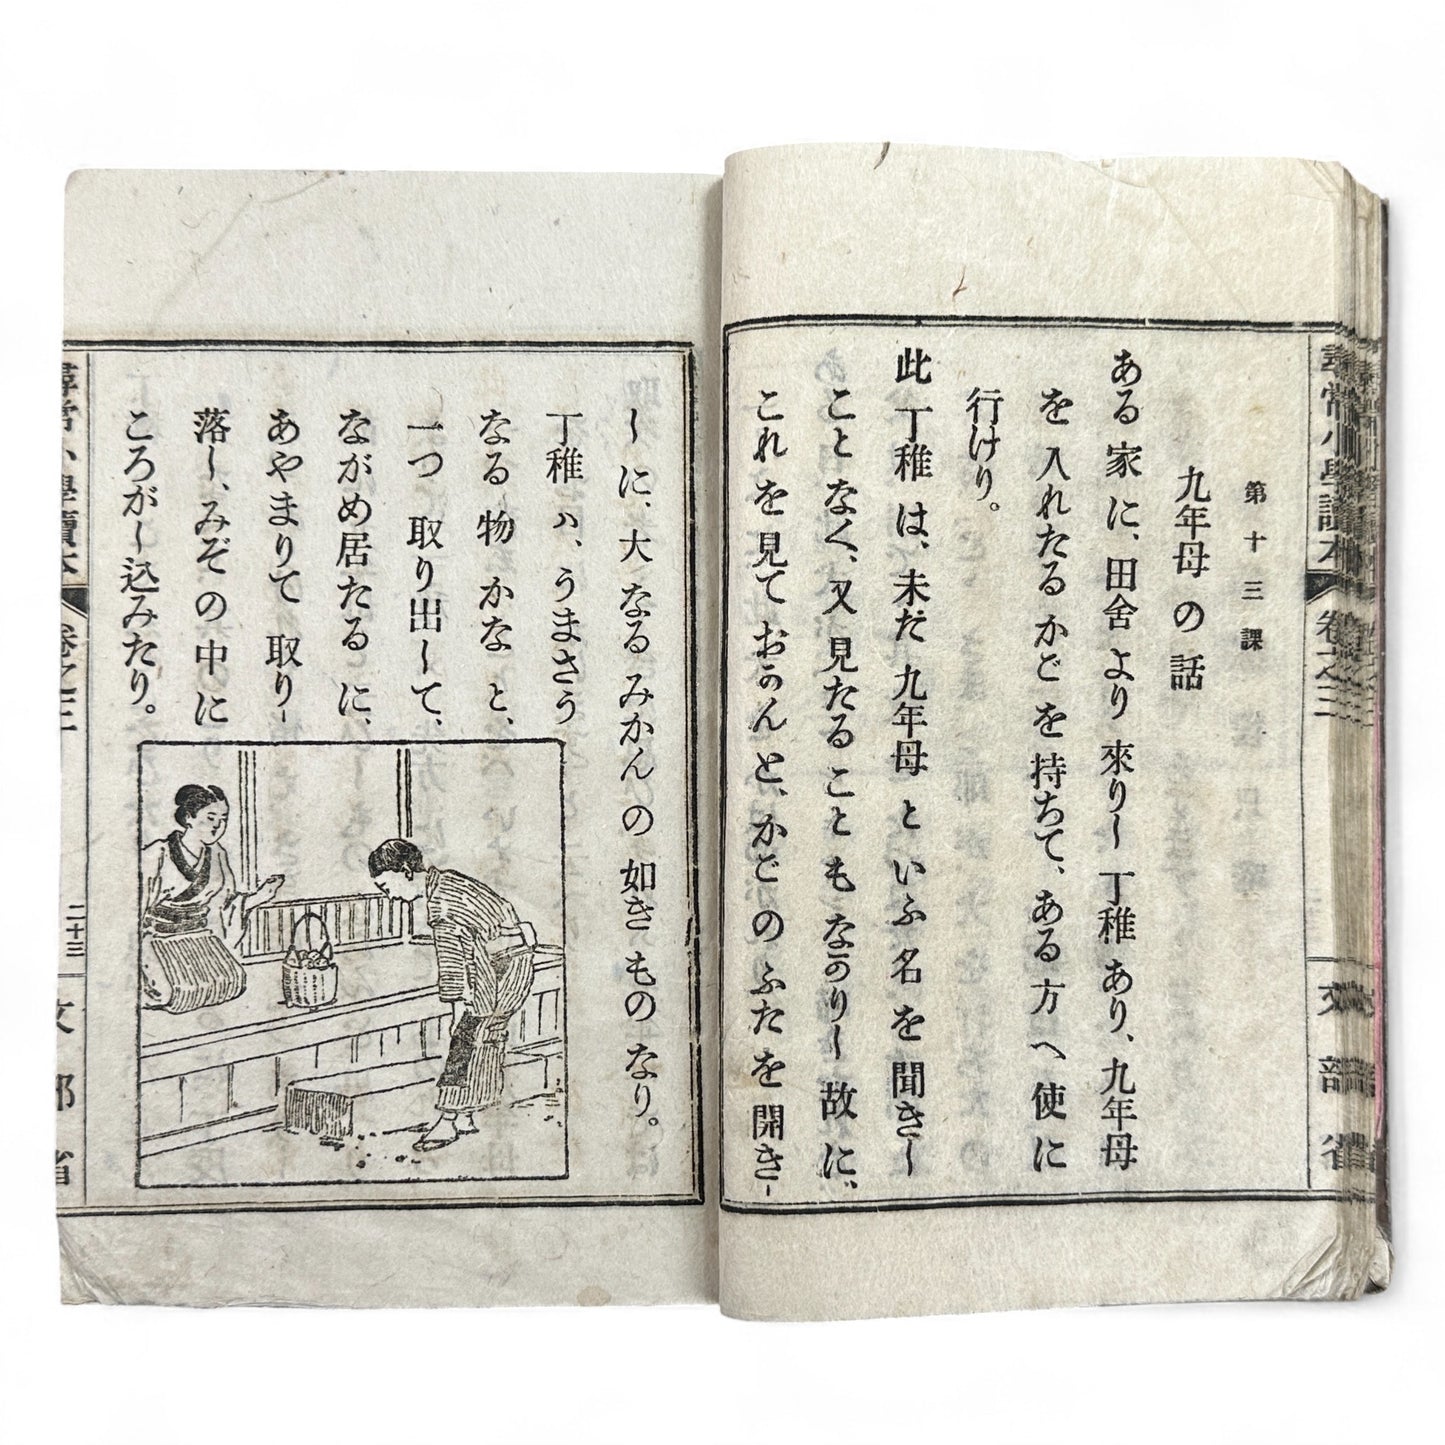 尋常小學讀本 卷之三 文部省
第十三課
九年母の話
ある家に、田舍より來りし丁稚あり、九年母
を入れたるかごを持ちて、ある方へ使に
行けり。
此丁稚は、未だ九年母といふ名を聞きし
ことなく、又見たることもなかりし故に、
これを見ておかんと、かごのふたを開き-
しに、大なるみかんの如きものなり。
丁稚ハ、うまさう
なる物かなと、
一つ取り出して、
ながめ居たるに、
あやまりて取り-
落し、みぞの中に
ころがし込みたり。
尋常小學讀本 卷之三 二十三 文部省